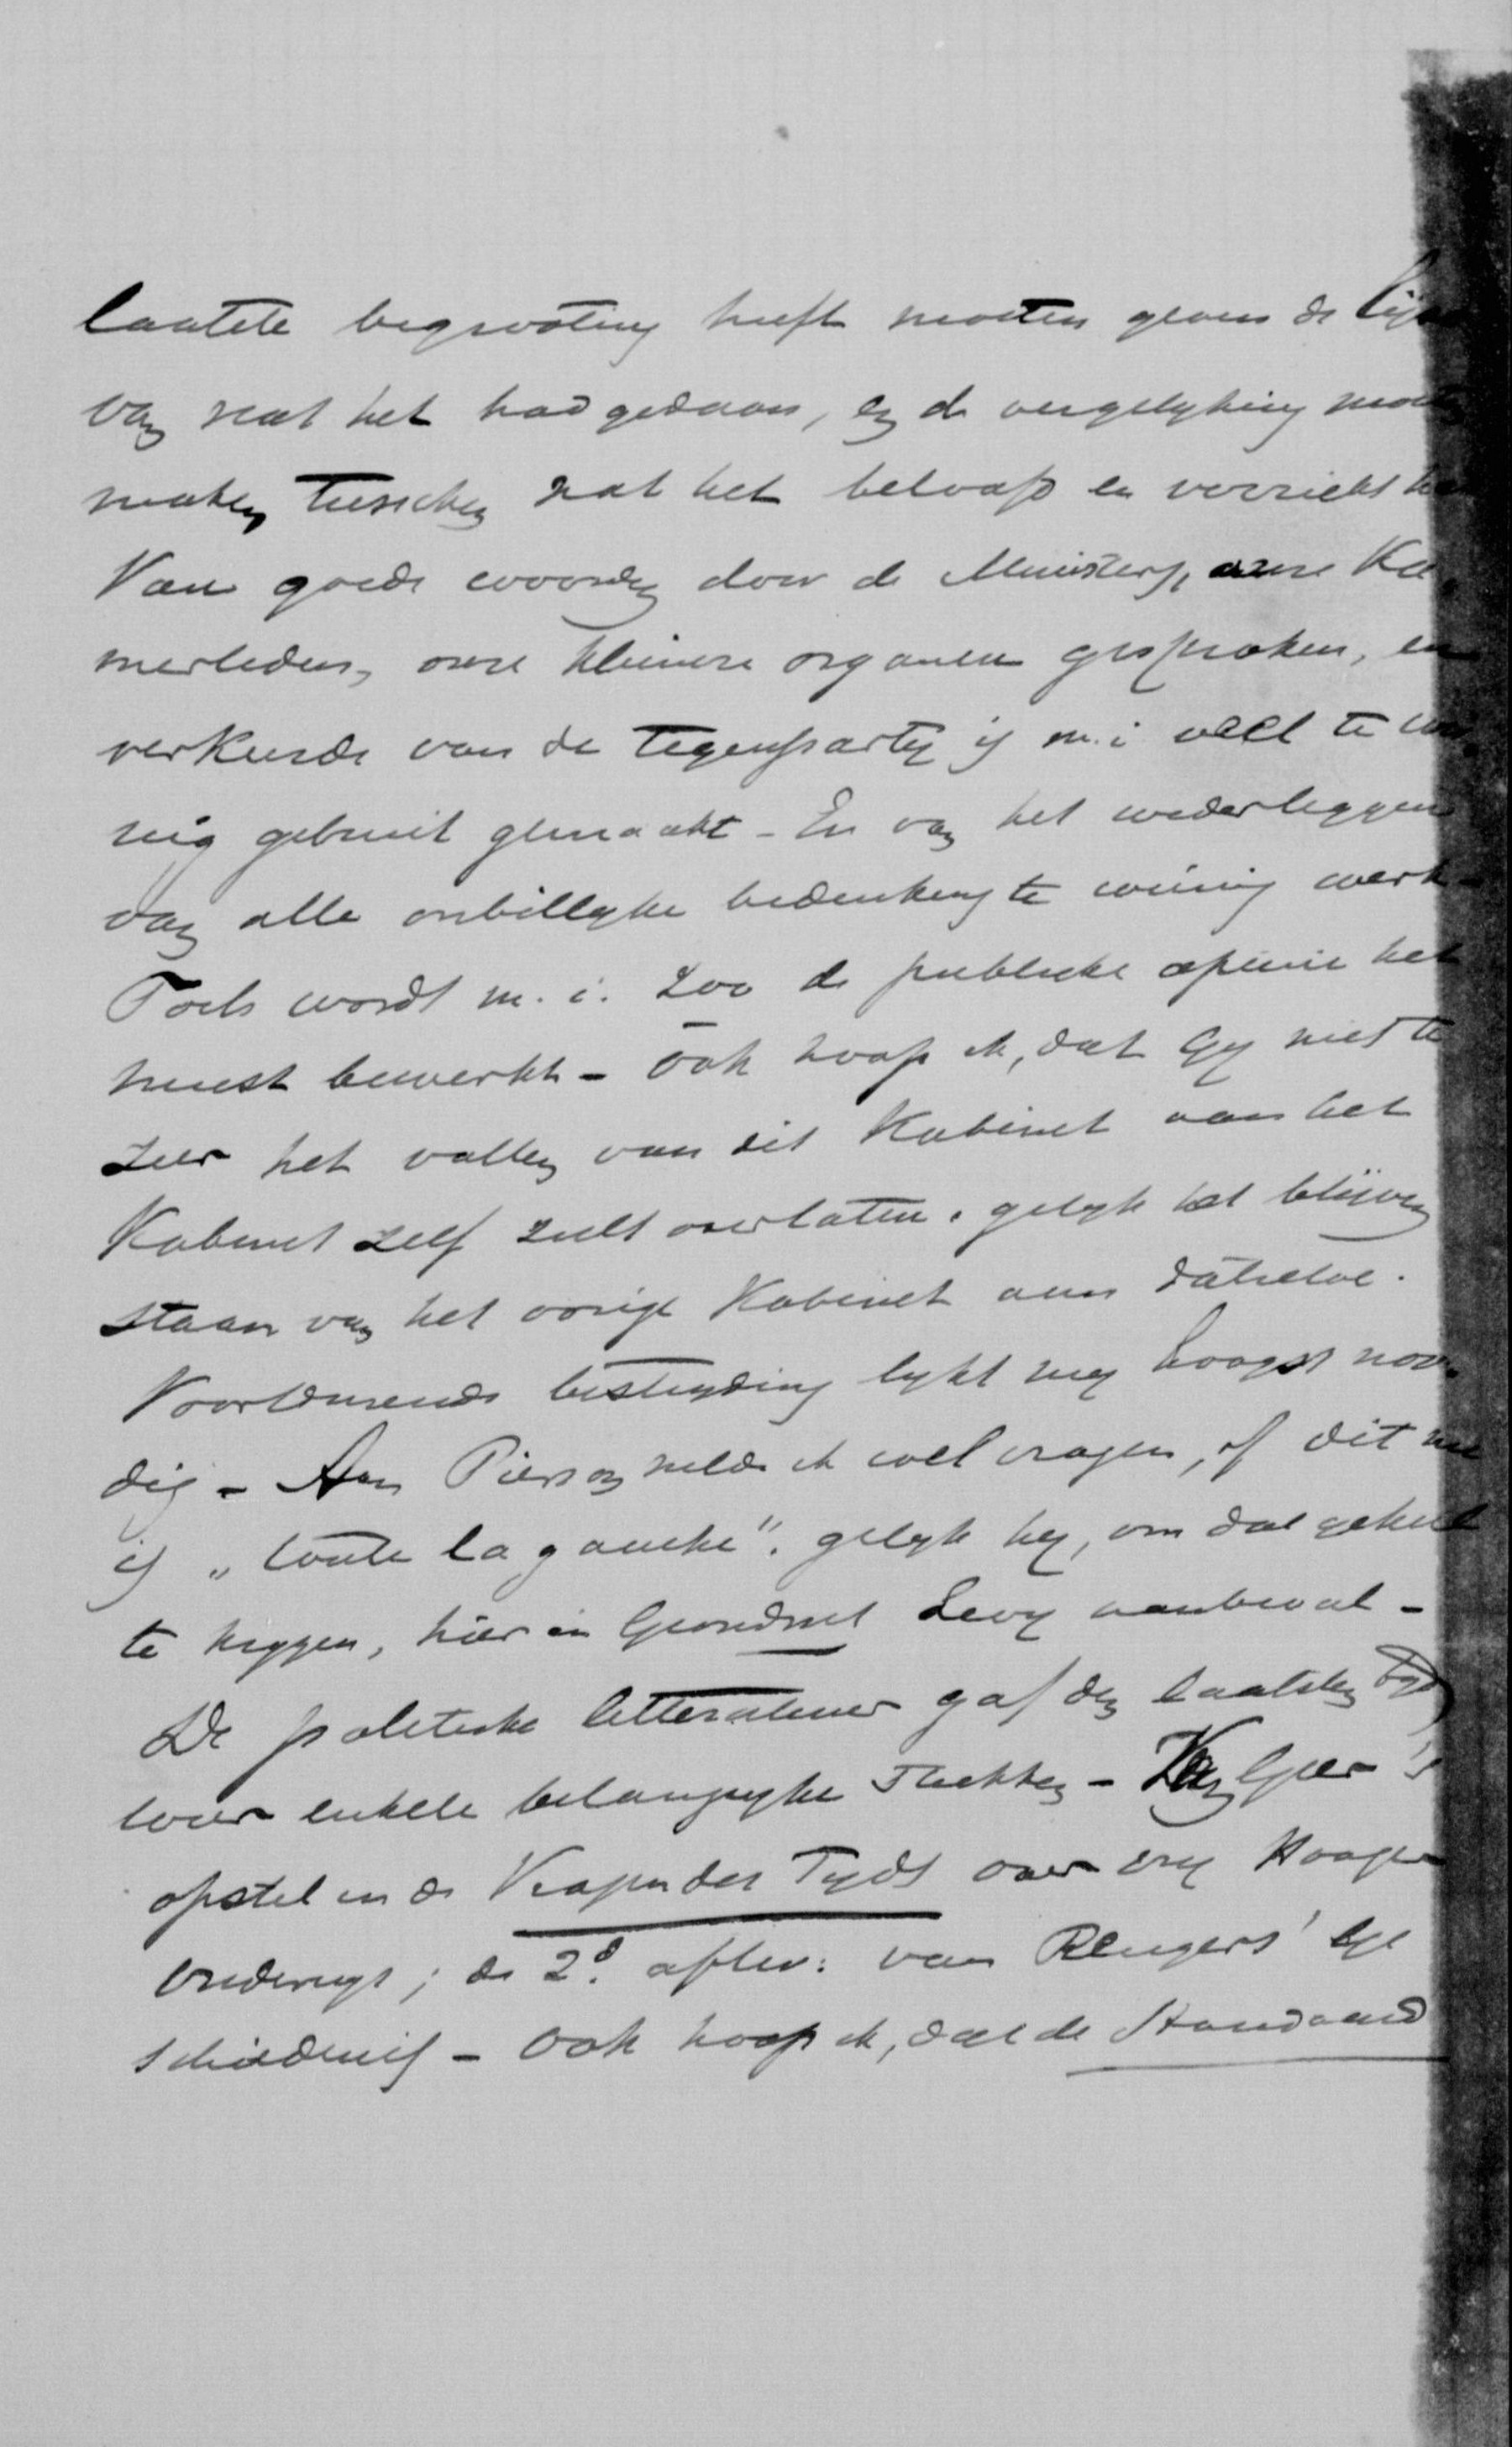 laatste begrooting heeft moeten geven de lijst
van wat het had gedaan, en de vergelyking moeten
maken tusschen wat het beloofd en verricht
Van goede woorden door de Ministers, onze Ka-
merleden, onze kleinere organen gesproken, en
verkeerde van de tegenparty is m.i veel te wei-
nig gebruik gemaakt - En van het wederleggen
van alle onbillyke bedenking te weinig werk -
Toch wordt m. i. zoo de publieke opinie het
meest bewerkt - Ook hoop ik, dat Gy niet te
zeer het vallen van dit Kabinet aan het
Kabinet zelf zult overlaten, gelyk het blijven
staan van het vorige Kabinet aan datzelve.
Voortdurende bestryding lykt my hoogst noo-
dig - Aan Pierson wilde ik wel vragen, of dit nu
is „toute la gauche", gelyk hy, om dat geheel
te krygen, hier in Gorredyk Levy aanbeval -
De politieke litteratuur gaf den laatsten tyd
weer enkele belangryke stukken - Kuyper's
opstel in de Vragen des Tyds over vry Hooger
Onderwys; de 2e. aflev: van Rengers' Ge
schiedenis - Ook hoop ik, dat de Standaard